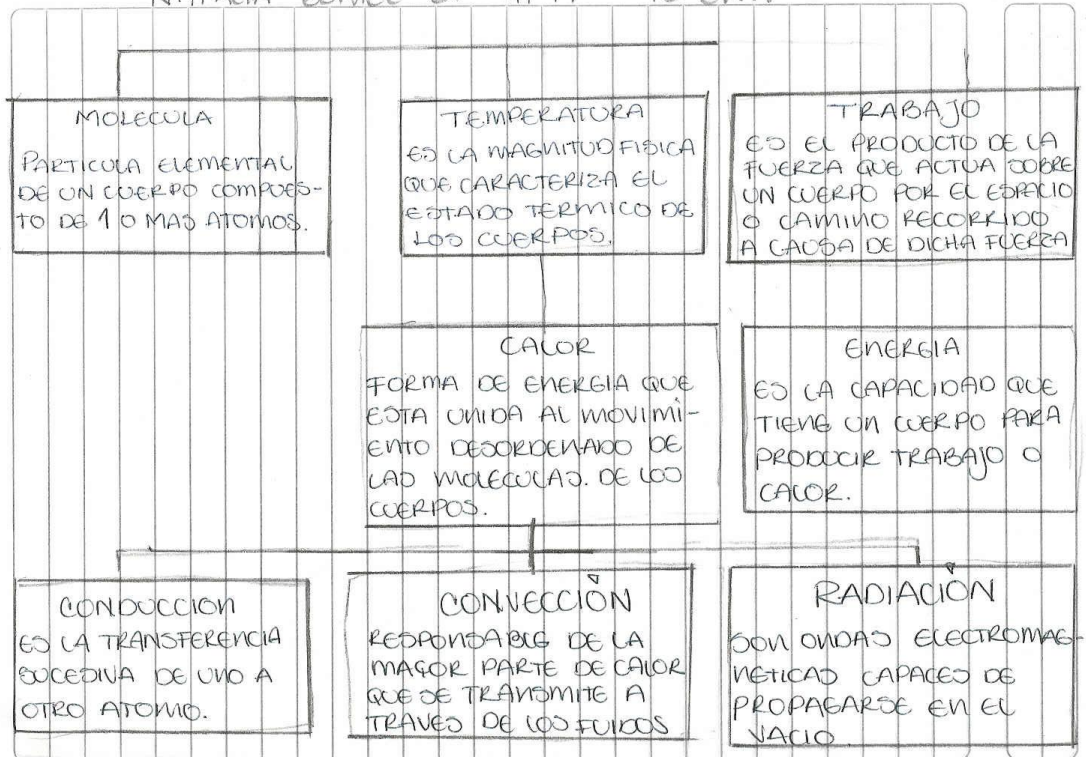 MOLECULA
PARTICULA ELEMENTAL
DE UN CUERPO COMPUES-
TO DE 1 O MAS ATOMOS.
TEMPERATURA
ES LA MAGNITUD FISICA
QUE CARACTERIZA EL
ESTADO TERMICO DE
LOS CUERPOS.
TRABAJO
ES EL PRODUCTO DE LA
FUERZA QUE ACTUA SOBRE
UN CUERPO POR EL ESPACIO
O CAMINO RECORRIDO
A CAUSA DE DICHA FUERZA
CALOR
FORMA DE ENERGIA QUE
ESTA UNIDA AL MOVIMI-
ENTO DESORDENADO DE
LAS MOLECULAS. DE LOS
CUERPOS.
ENERGIA
ES LA CAPACIDAD QUE
TIENE UN CUERPO PARA
PRODUCIR TRABAJO O
CALOR.
CONDUCCION
ES LA TRANSFERENCIA
SUCESIVA DE UNO A
OTRO ATOMO.
CONVECCIÓN
RESPONSABLE DE LA
MAYOR PARTE DE CALOR
QUE SE TRANSMITE A
TRAVES DE LOS FUIDOS
RADIACIÓN
SON ONDAS ELECTROMAG-
NETICAS CAPACES DE
PROPAGARSE EN EL
VACIO.